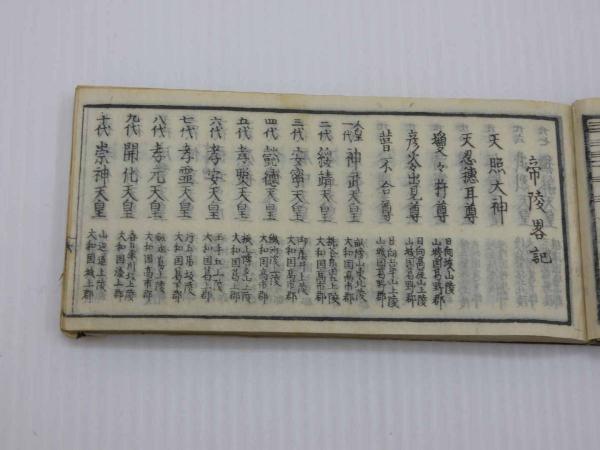 帝陵畧記
天照大神
天忍穂耳尊
瓊々杵尊
日向埃山上陵
山城国葛野郡
彦火々出見尊
日向高屋山上陵
山城国葛野郡
葺不合尊
日向吾平山上陵
山城国葛野郡
人皇一代 神武天皇
畝傍山東北陵
大和国高市郡
二代 綏靖天皇
桃花鳥田丘上陵
大和国高市郡
三代 安寧天皇
御蔭井上陵
大和国高市郡
四代 懿徳天皇
繊沙渓上陵
大和国高市郡
五代 孝照天皇
掖上博多山上陵
大和国葛上郡
六代 孝安天皇
玉手丘上陵
大和国葛上郡
七代 孝霊天皇
片丘馬坂陵
大和国葛下郡
八代 孝元天皇
大和国高市郡
九代 開化天皇
春日率川坂上陵
大和国添上郡
十代 崇神天皇
山辺道上陵
大和国城上郡